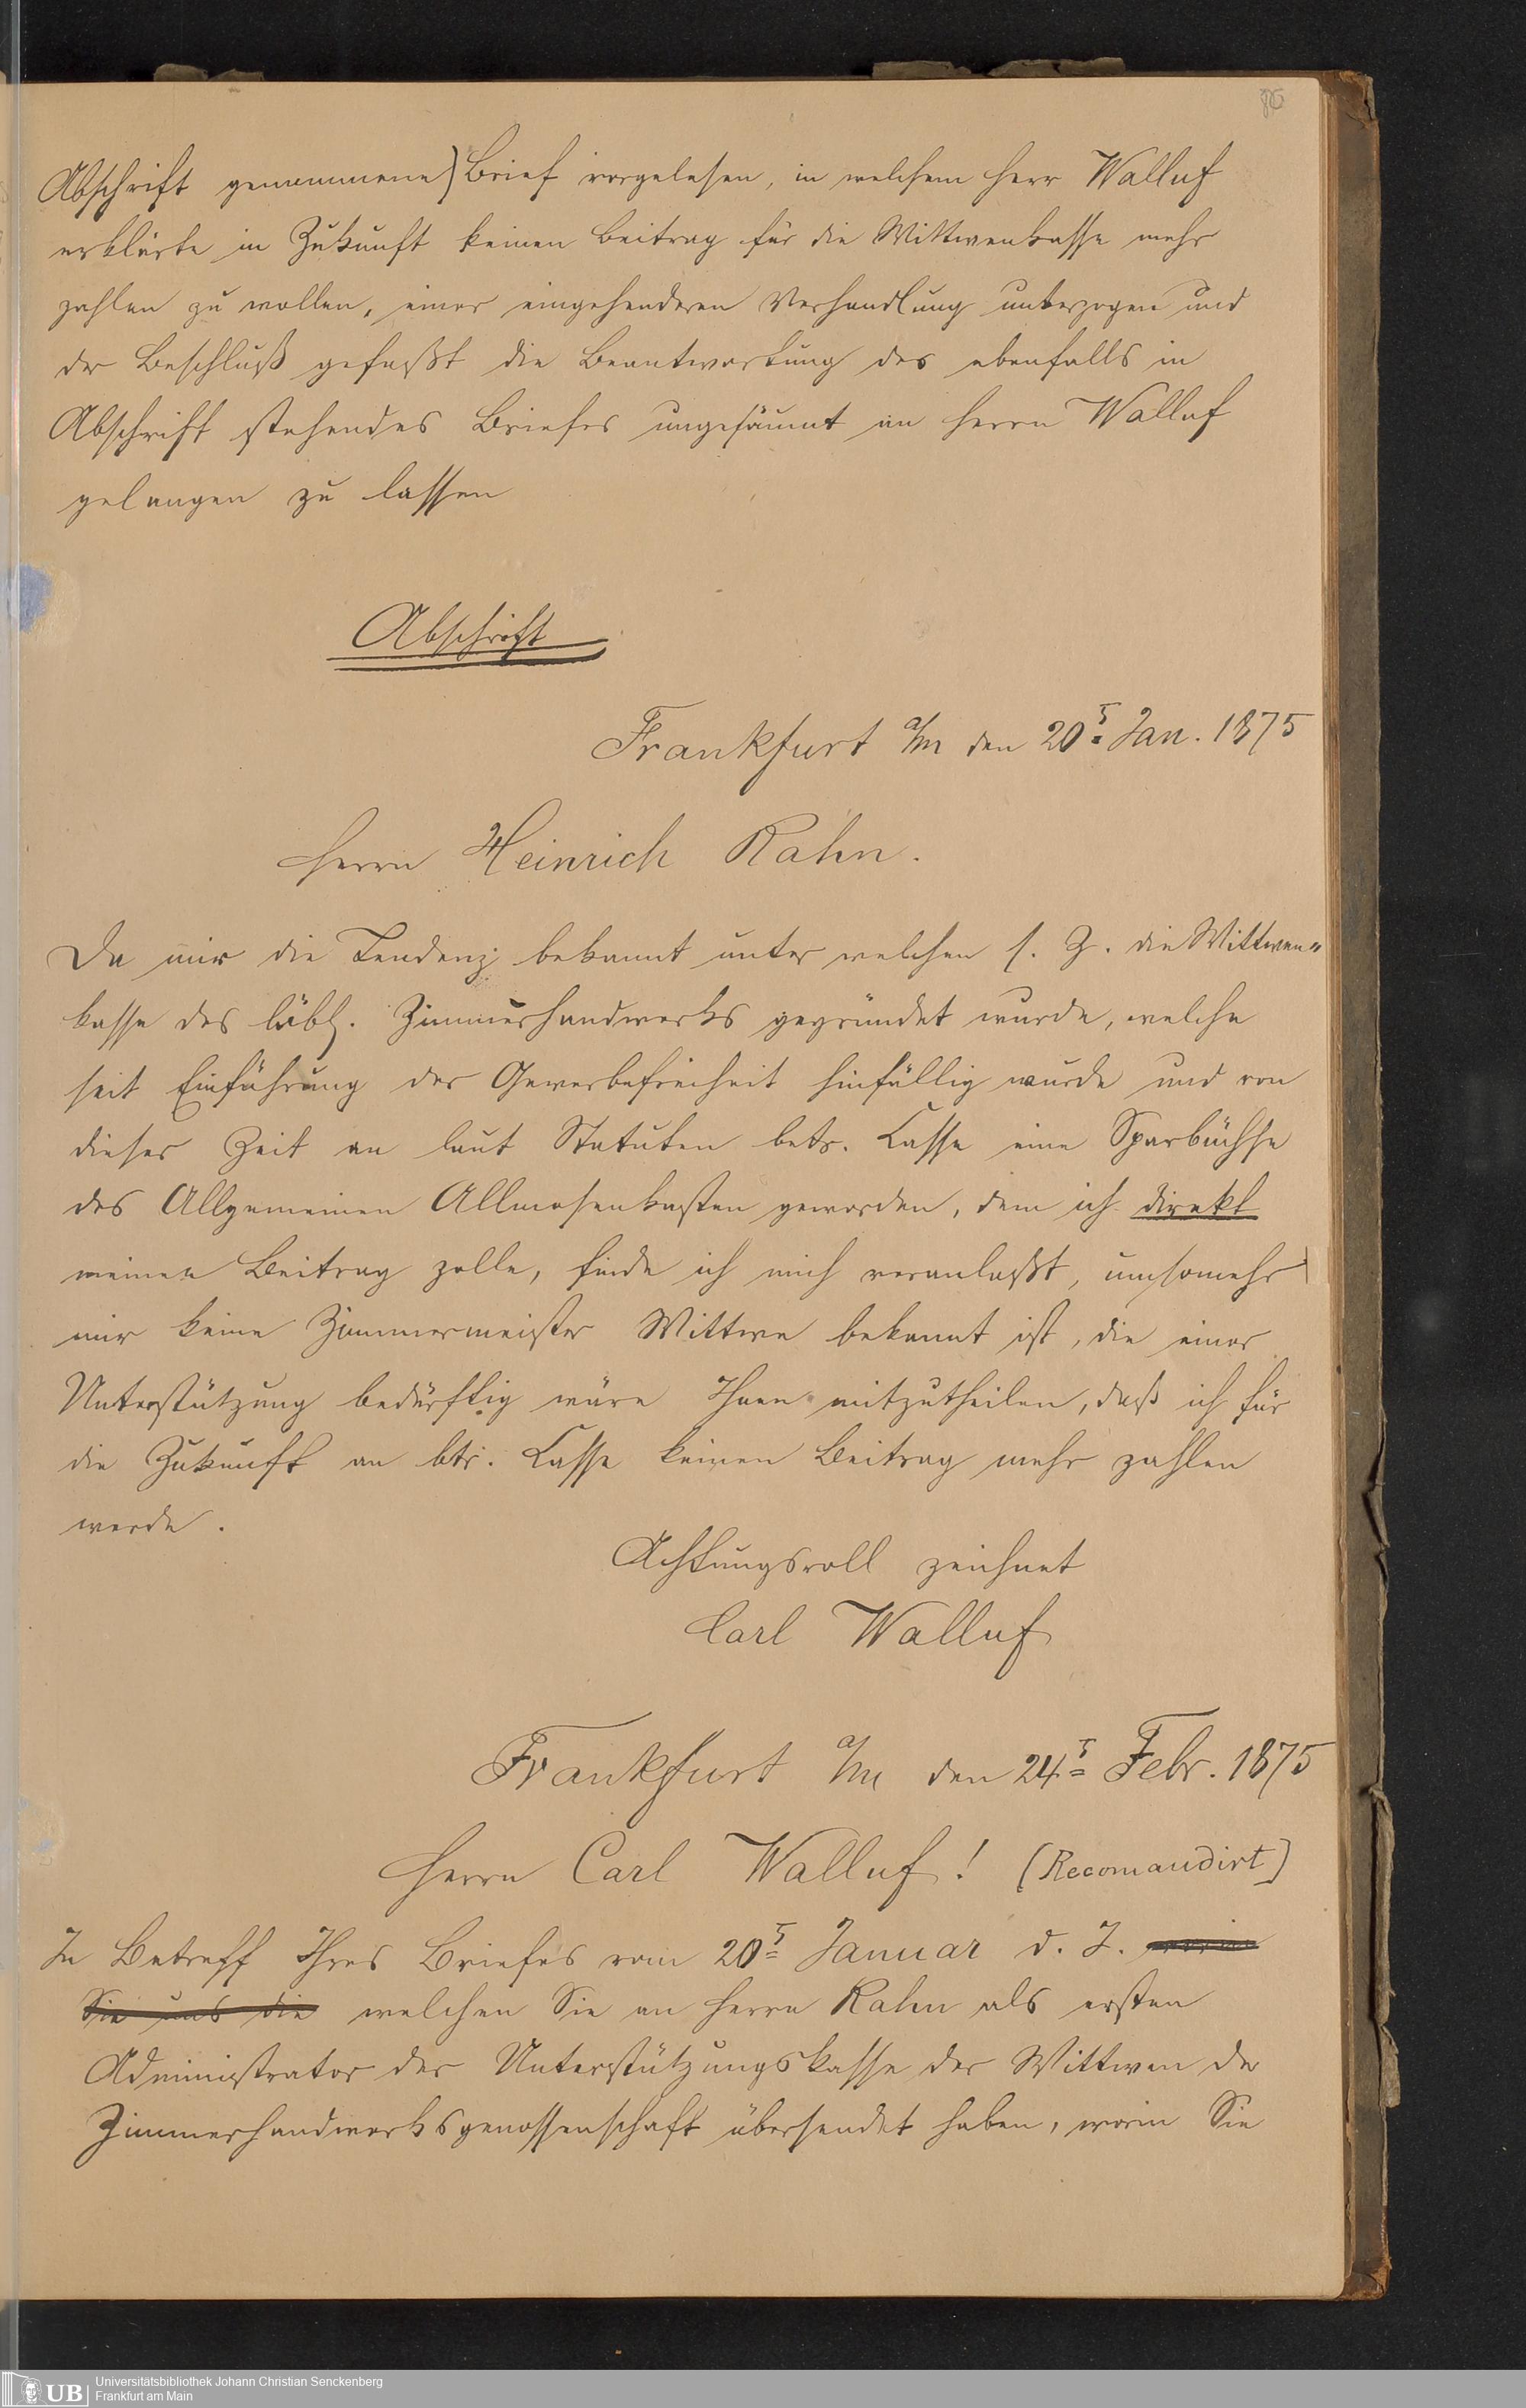 Abschrift genommene) Brief vorgelesen, in welchem Herr Walluf
erklärte in Zukunft keinen Beitrag für die Wittwenkasse mehr
zahlen zu wollen, einer eingehenderen Verhandlung unterzogen und
der Beschluß gefaßt die Beantwortung des ebenfalls in
Abschrift stehendes Briefes ungesäumt an Herrn Walluf
gelangen zu lassen
Abschrift
Frankfurt a/m den 20t Jan. 1875
Herrn Heinrich Rahn.
Da mir die Tendenz bekannt unter welchen s. Z. die Wittwen-
kasse des löbl. Zimmerhandwerks gegründet wurde, welche
seit Einführung der Gewerbefreiheit hinfällig wurde und von
dieser Zeit an laut Statuten betr. Casse eine Sparbüchse
des Allgemeinen Allmosenkasten geworden, dem ich direkt
meinen Beitrag zolle, finde ich mich veranlaßt, umsomehr
mir keine Zimmermeister Wittwe bekannt ist, die einer
Unterstützung bedürftig wäre Ihnen mitzutheilen, daß ich für
die Zukunft an btr. Casse keinen Beitrag mehr zahlen
werde.
Achtungsvoll zeichnet
Carl Walluf
Frankfurt a/m den 24t Febr. 1875
Herrn Carl Walluf! (Recomandirt)
In Betreff Ihres Briefes vom 20t Januar d. J. worin
Sie uns die welchen Sie an Herrn Rahn als ersten
Administrator der Unterstützungskasse der Wittwen der
Zimmerhandwerksgenossenschaft übersendet haben, worin Sie
UB
Universitätsbibliothek Johann Christian Senckenberg
Frankfurt am Main